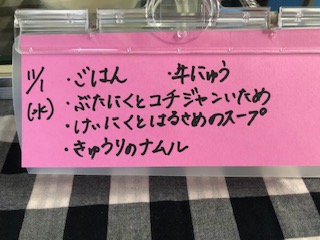 11/1 (水)
・ごはん ・牛にゅう
・ぶたにくとコチジャンいため
・けいにくとはるさめのスープ
・きゅうりのナムル